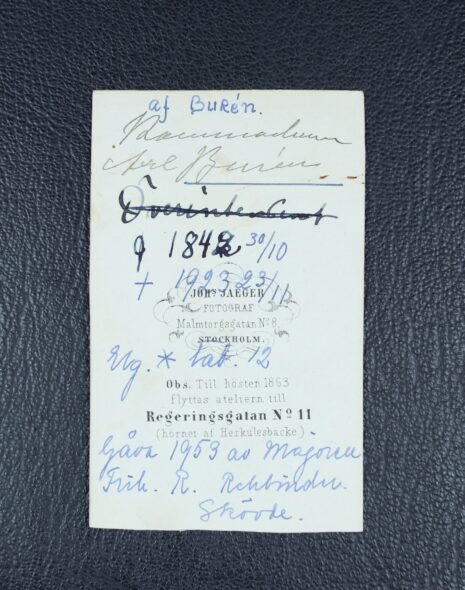 af Burén.
Kammarherre
Axel Burén
Överintendent
1842 30/10
+ 1923 23/11
JOHS JAEGER
FOTOGRAF
Malmtorgsgatan No 8
STOCKHOLM.
Elg. * tab. 12
Obs. Till hösten 1863
flyttas ateliern till
Regeringsgatan No 11
(hörnet af Herkulesbacke)
Gåva 1953 av Majoren
Frih. R. Rehbinder.
Skövde.